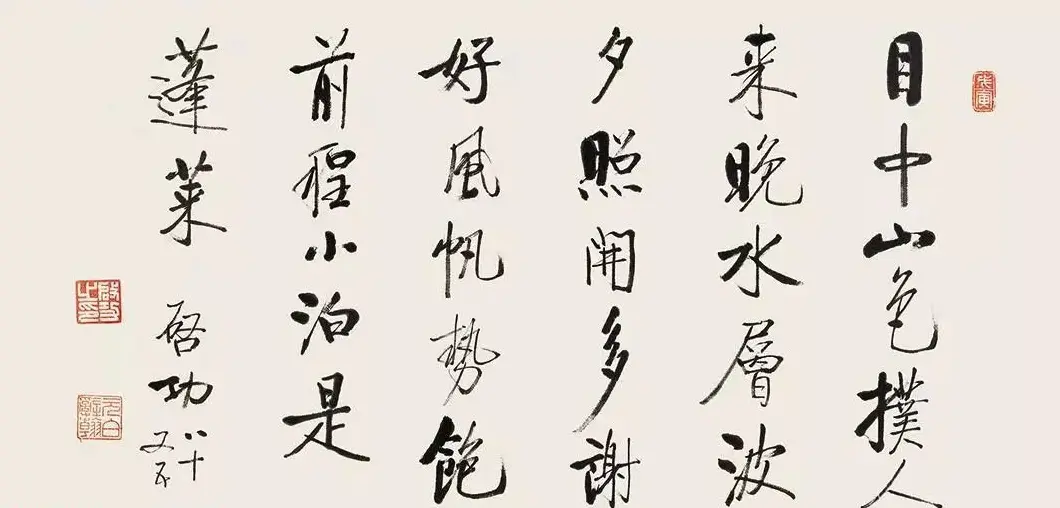 戊寅
目中山色撲人
来晚水層波
夕照開多謝
好風帆勢飽
前程小泊是
蓬萊
启功
八十
又五
啟功之印